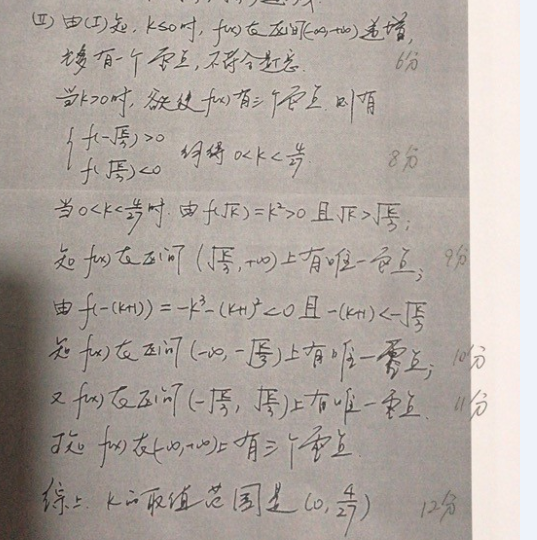 (Ⅱ) 由(Ⅰ)知, k≤0时, f(x)在区间(-∞,+∞)递增,
至多有一个零点, 不符合题意. 6分
当k>0时, 若使f(x)有三个零点, 则有
{ f(-√(k/3))>0
f(√(k/3))<0 解得 0<k<4/27 8分
当0<k<4/27时. 由f(√k)=k²>0 且√k>√(k/3);
知 f(x)在区间(√(k/3),+∞)上有唯一零点; 9分
由 f(-(k+1))=-k³-(k+1)²<0 且 -(k+1)<-√(k/3)
知 f(x)在区间(-∞,-√(k/3))上有唯一零点; 10分
又f(x)在区间(-√(k/3), √(k/3))上有唯一零点. 11分
故知 f(x)在(-∞,+∞)上有三个零点.
综上. k的取值范围是(0, 4/27) 12分